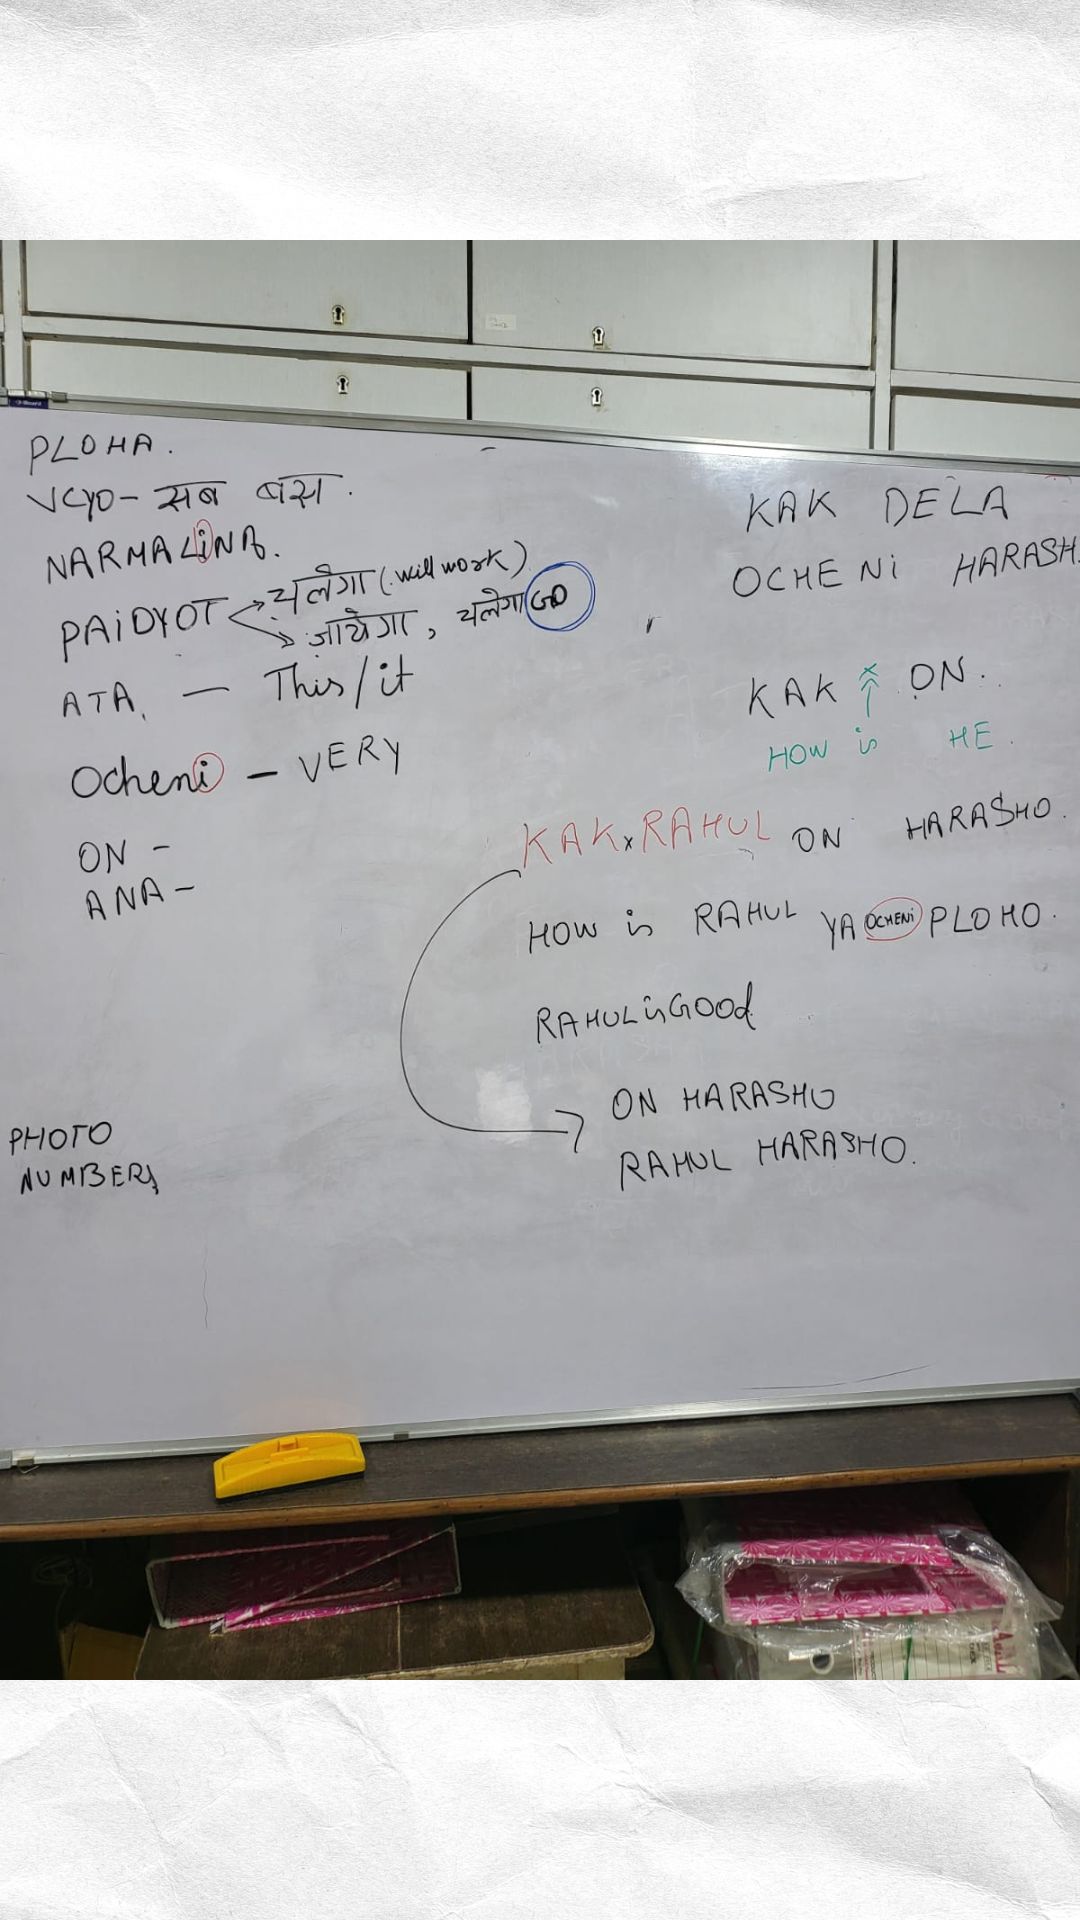 PLOHA.
VCYO - सब बस.
NARMALiNA.
PAiDYOT चलेगा (will work)
जायेगा, चलेगा GO
ATA. — This/it
Ocheni - VERY
ON -
ANA -
PHOTO
NUMBERS
KAK DELA
OCHENi HARASH
KAK x ON.
HOW is HE.
KAK x RAHUL ON HARASHO.
HOW is RAHUL YA OCHENi PLOHO.
RAHUL is GOOd
ON HARASHO
RAHUL HARASHO.